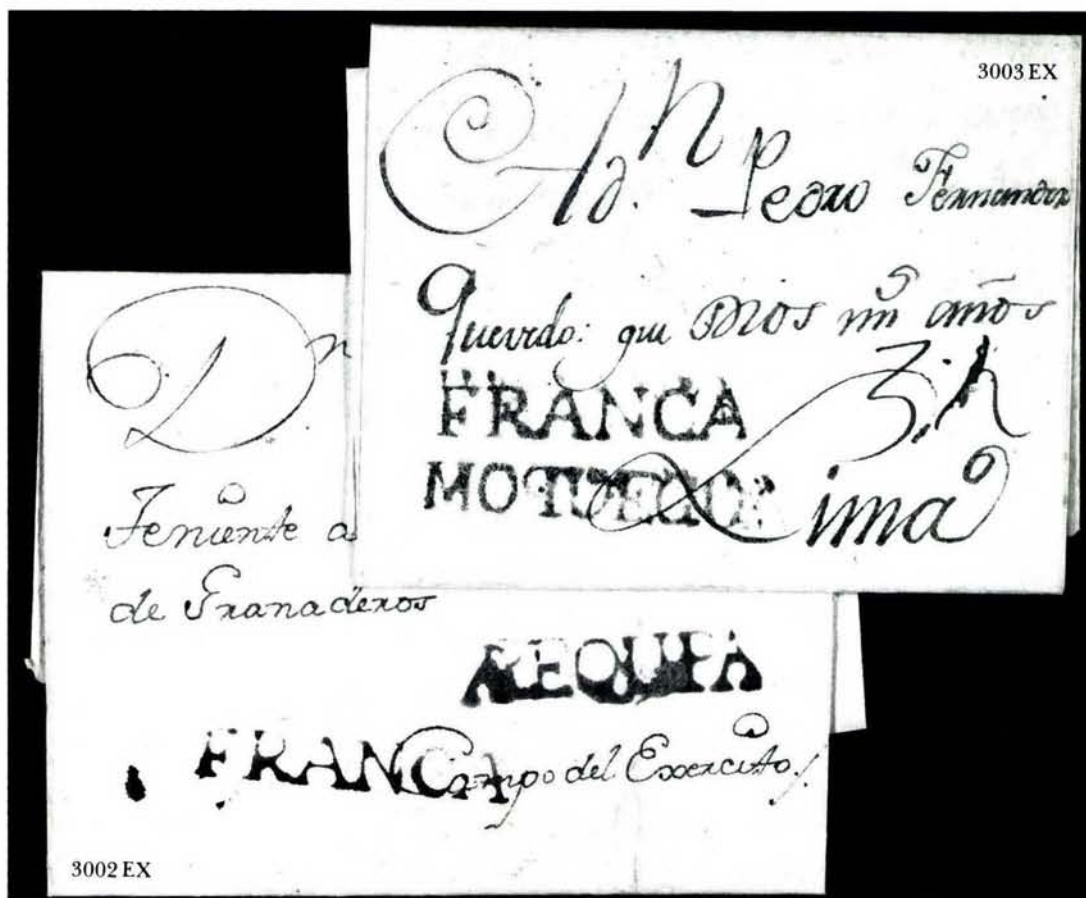 3003 EX
A d.n Pedro Fernandez
Quevedo: gue Dios ms años
3. h
FRANCA
MOTUEGUA Lima
D n
Teniente
de Granaderos
AREQUIPA
FRANCA Campo del Exercito.
3002 EX